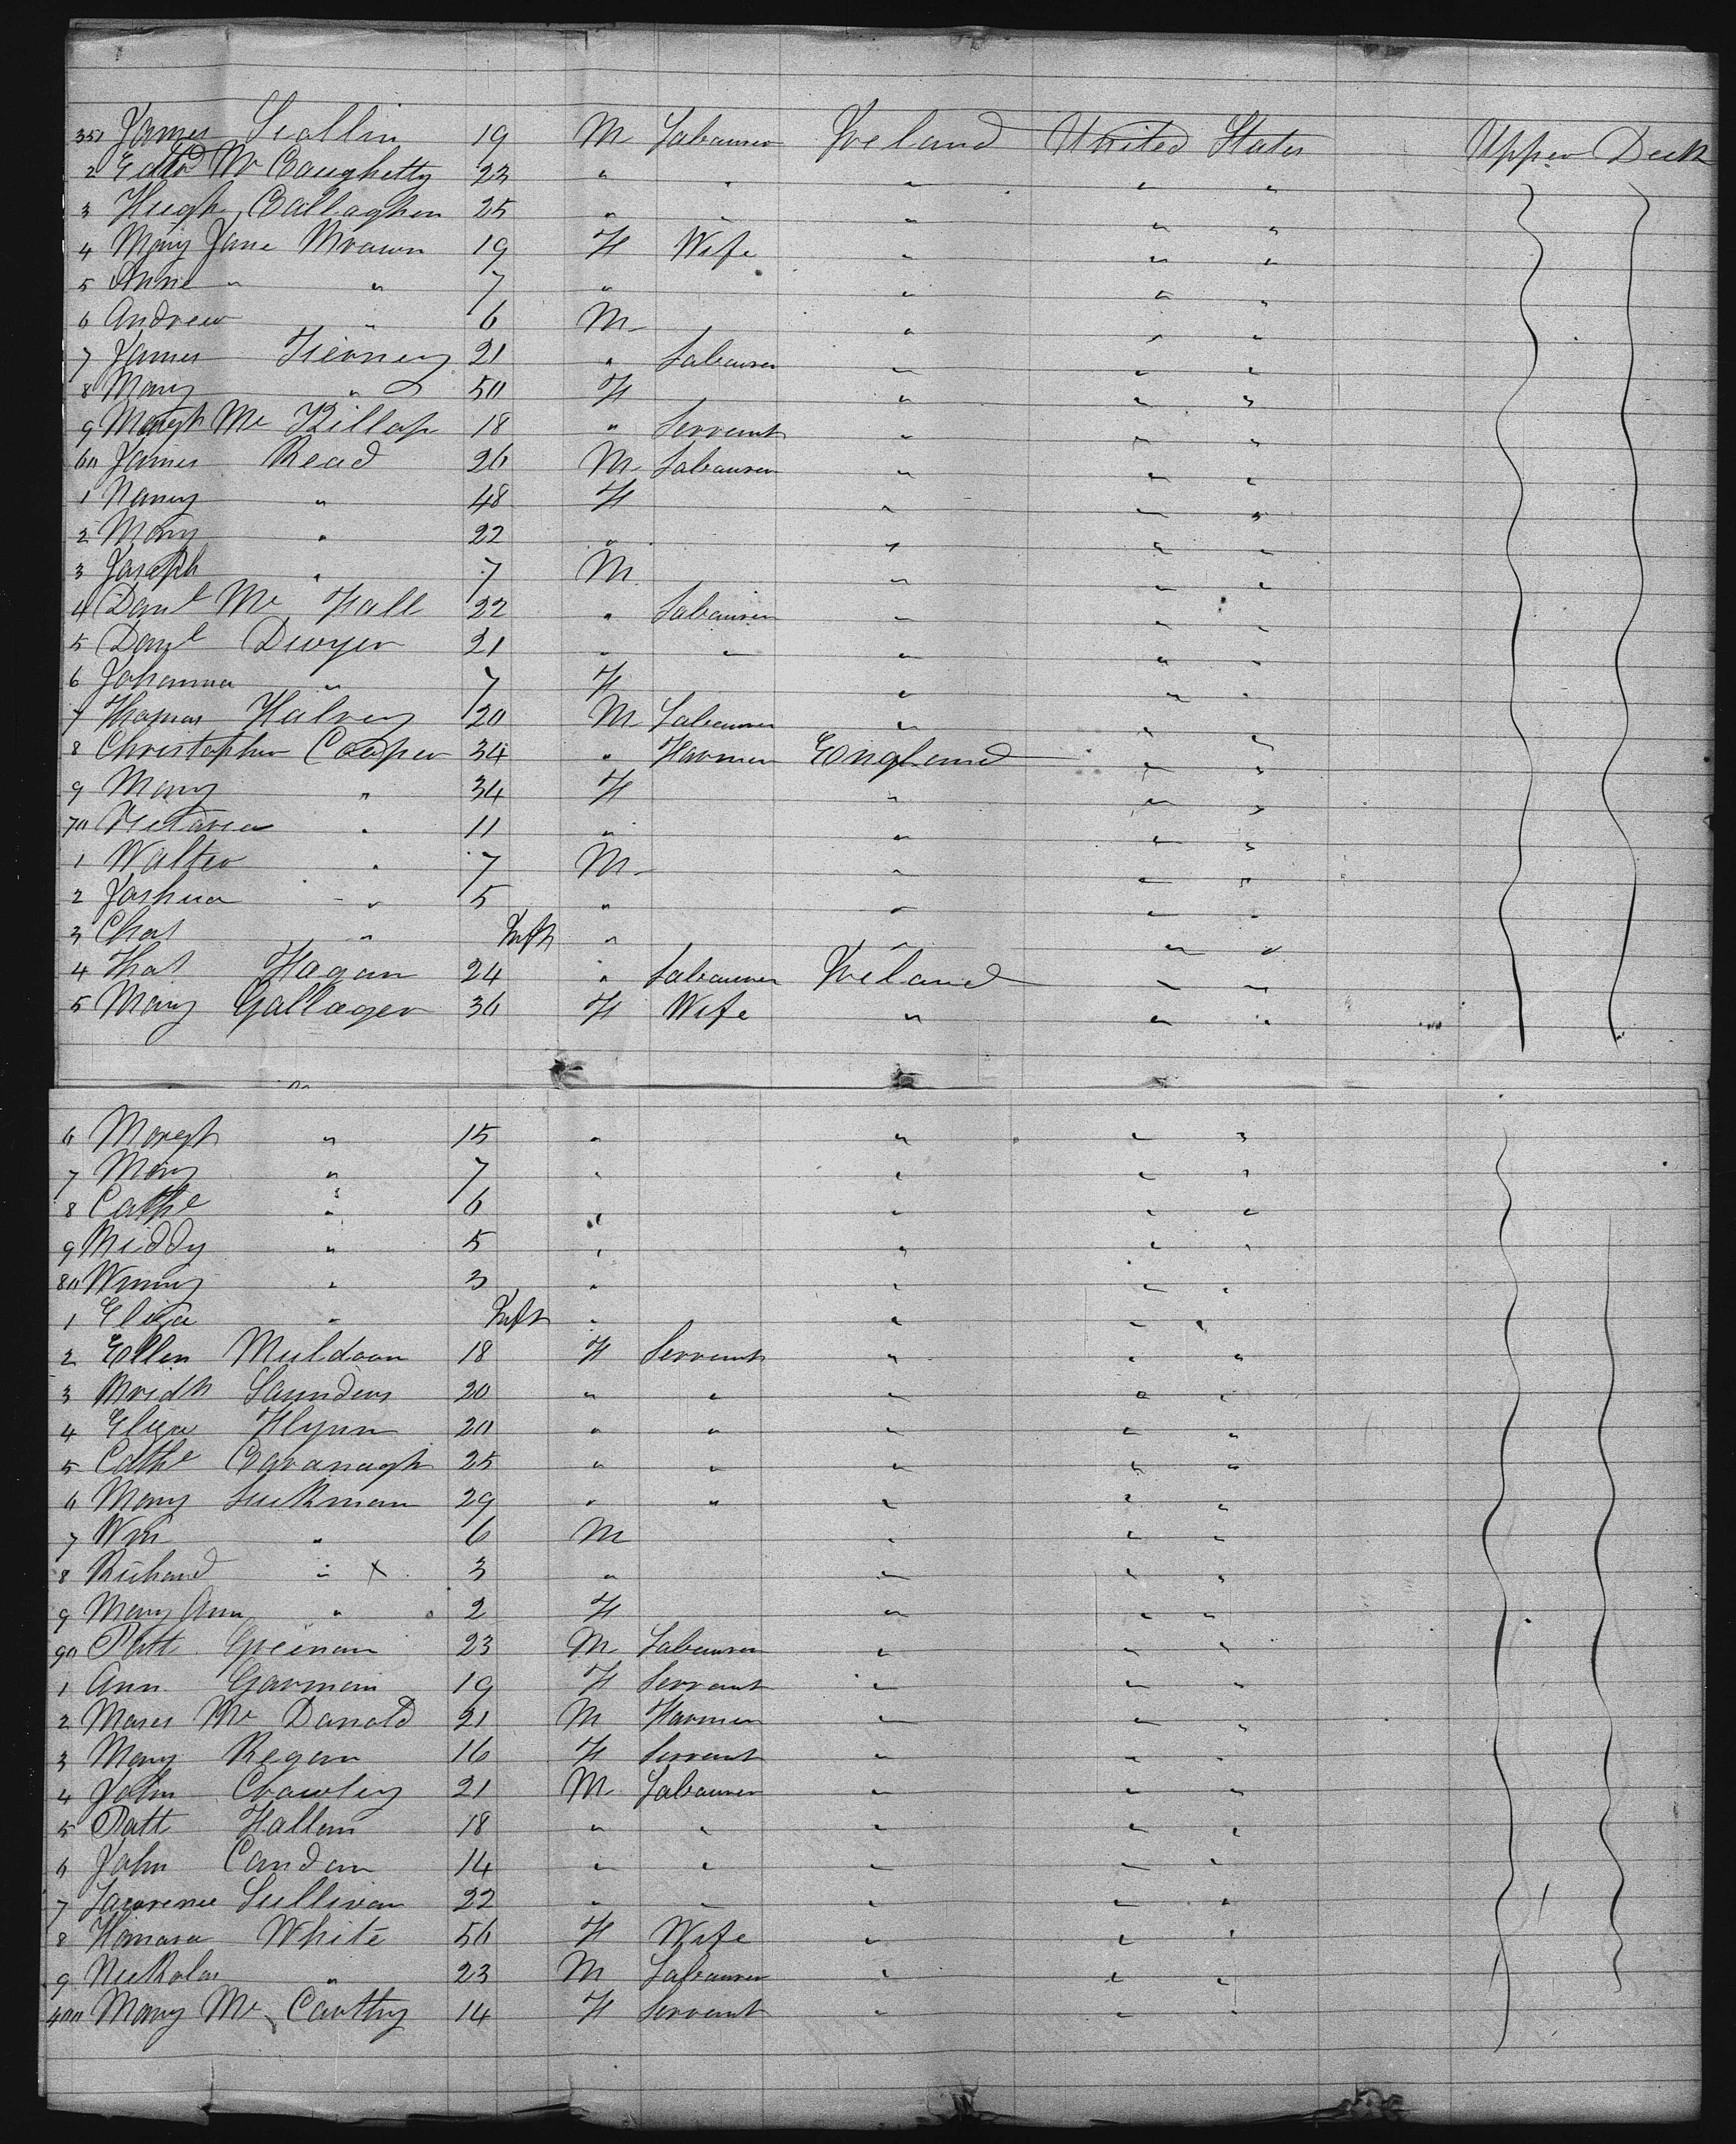 351 James Scallin 19 M Labourer Ireland United States Upper Deck
2 Edwd Mc Caughetty 23 " " " " "
3 Hugh Callaghan 25 " " " " "
4 Mary Jane Brown 19 F Wife " " "
5 Anne " " 7 " " " "
6 Andrew " 6 M " " "
7 James Tierney 21 " Labourer " " "
8 Mary " 50 F " " "
9 Margt Mc Killop 18 " Servant " " "
60 James Read 26 M Labourer " " "
1 Nancy " 48 F " " "
2 Mary " 22 " " " "
3 Joseph " 7 M " " "
4 Danl Mc Fall 22 " Labourer " " "
5 Danl Dwyer 21 " " " " "
6 Johanna " 7 F " " "
7 Thomas Halvey 20 M Labourer " " "
8 Christopher Cowper 34 " Farmer England " "
9 Mary " 34 F " " "
70 Victoria " 11 " " " "
1 Walter " 7 M " " "
2 Joshua " 5 " " " "
3 Chas " Inft " " " "
4 Thos Hagan 24 " Labourer Ireland " "
5 Mary Gallager 36 F Wife " " "
6 Margt " 15 " " " "
7 Mary " 7 " " " "
8 Cathe " 6 " " " "
9 Biddy " 5 " " " "
80 Winny " 3 " " " "
1 Eliza " Inft " " " "
2 Ellen Muldoon 18 F Servant " " "
3 Bridt Saunders 20 " " " " "
4 Eliza Flynn 20 " " " " "
5 Cathe Cavanagh 25 " " " " "
6 Mary Luckman 29 " " " " "
7 Wm " 6 M " " "
8 Richard " X 3 " " " "
9 Mary Ann " 2 F " " "
90 Patt Greenan 23 M Labourer " " "
1 Ann Garman 19 F Servant " " "
2 Moses Mc Donald 21 M Farmer " " "
3 Mary Regan 16 F Servant " " "
4 John Crawley 21 M Labourer " " "
5 Patt Hallan 18 " " " " "
6 John Condon 14 " " " " "
7 Lawrence Sullivan 22 " " " " "
8 Honora White 56 F Wife " " "
9 Nickolas " 23 M Labourer " " "
400 Mary Mc Carthy 14 F Servant " " "